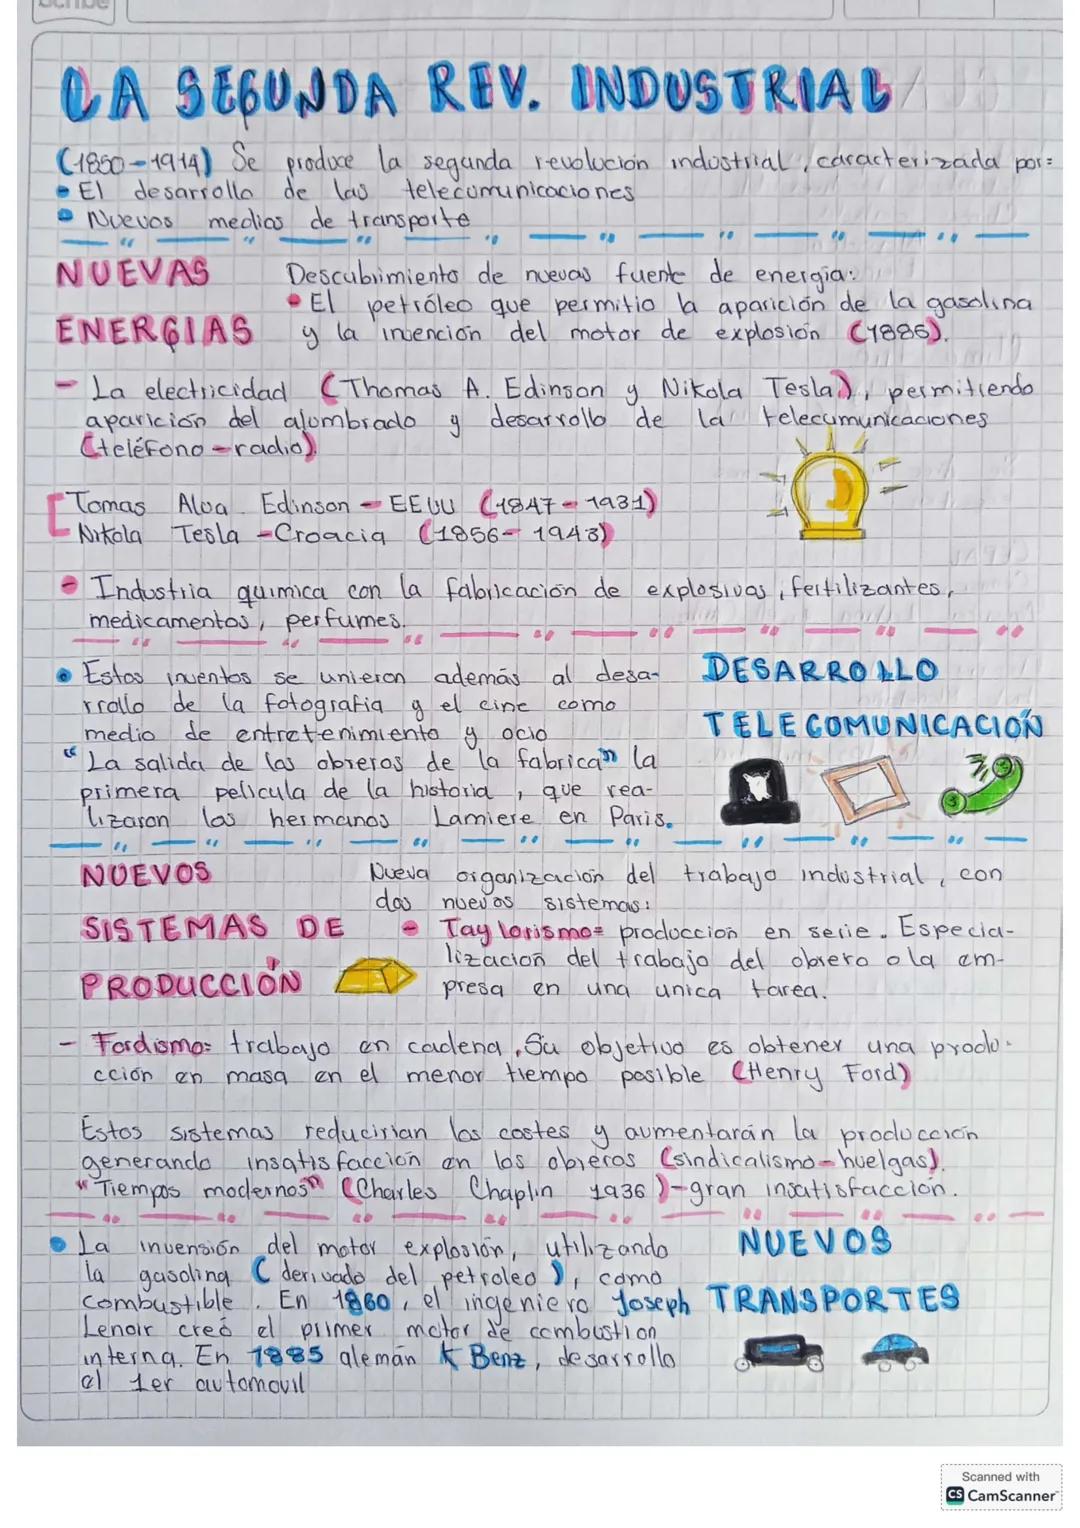 Scribe
LA SEGUNDA REV. INDUSTRIAL
(1850-1914) Se produce la segunda revolución industrial, caracterizada por:
• El desarrollo de las telecomunicaciones
• Nuevos medios de transporte
NUEVAS ENERGIAS
Descubrimiento de nuevas fuente de energía:
• El petróleo que permitio la aparición de la gasolina
y la invención del motor de explosión (1886).
- La electricidad (Thomas A. Edinson y Nikola Tesla), permitiendo
aparición del alumbrado y desarrollo de la telecumunicaciones
(teléfono - radio).
[Tomas Alva Edinson - EEUU (1847 - 1931)
Nikola Tesla - Croacia (1856 - 1943)
• Industria quimica con la fabricación de explosivos, fertilizantes,
medicamentos, perfumes.
DESARROLLO
TELECOMUNICACIÓN
• Estos inventos se unieron además al desa-
rrollo de la fotografia y el cine como
medio de entretenimiento y ocio
"La salida de los obreros de la fabrica" la
primera pelicula de la historia, que rea-
lizaron los hermanos Lamiere en Paris.
NUEVOS
SISTEMAS DE
PRODUCCIÓN
Nueva organización del trabajo industrial, con
dos nuevos sistemas:
• Taylorismo= produccion en serie. Especia-
lización del trabajo del obrero o la em-
presa en una unica tarea.
- Fordismo: trabajo en cadena. Su objetivo es obtener una produ-
cción en masa en el menor tiempo posible (Henry Ford)
Estos sistemas reducirian los costes y aumentarán la producción
generando insatisfacción en los obreros (sindicalismo - huelgas).
"Tiempos modernos" (Charles Chaplin 1936) - gran insatisfacción.
NUEVOS
TRANSPORTES
• La invensión del motor explosión, utilizando
la gasolina (derivado del petroleo), como
combustible. En 1860, el ingeniero Joseph
Lenoir creó el primer motor de combustion
interna. En 1885 alemán K Benz, desarrollo
el 1er automovil
Scanned with
CS CamScanner